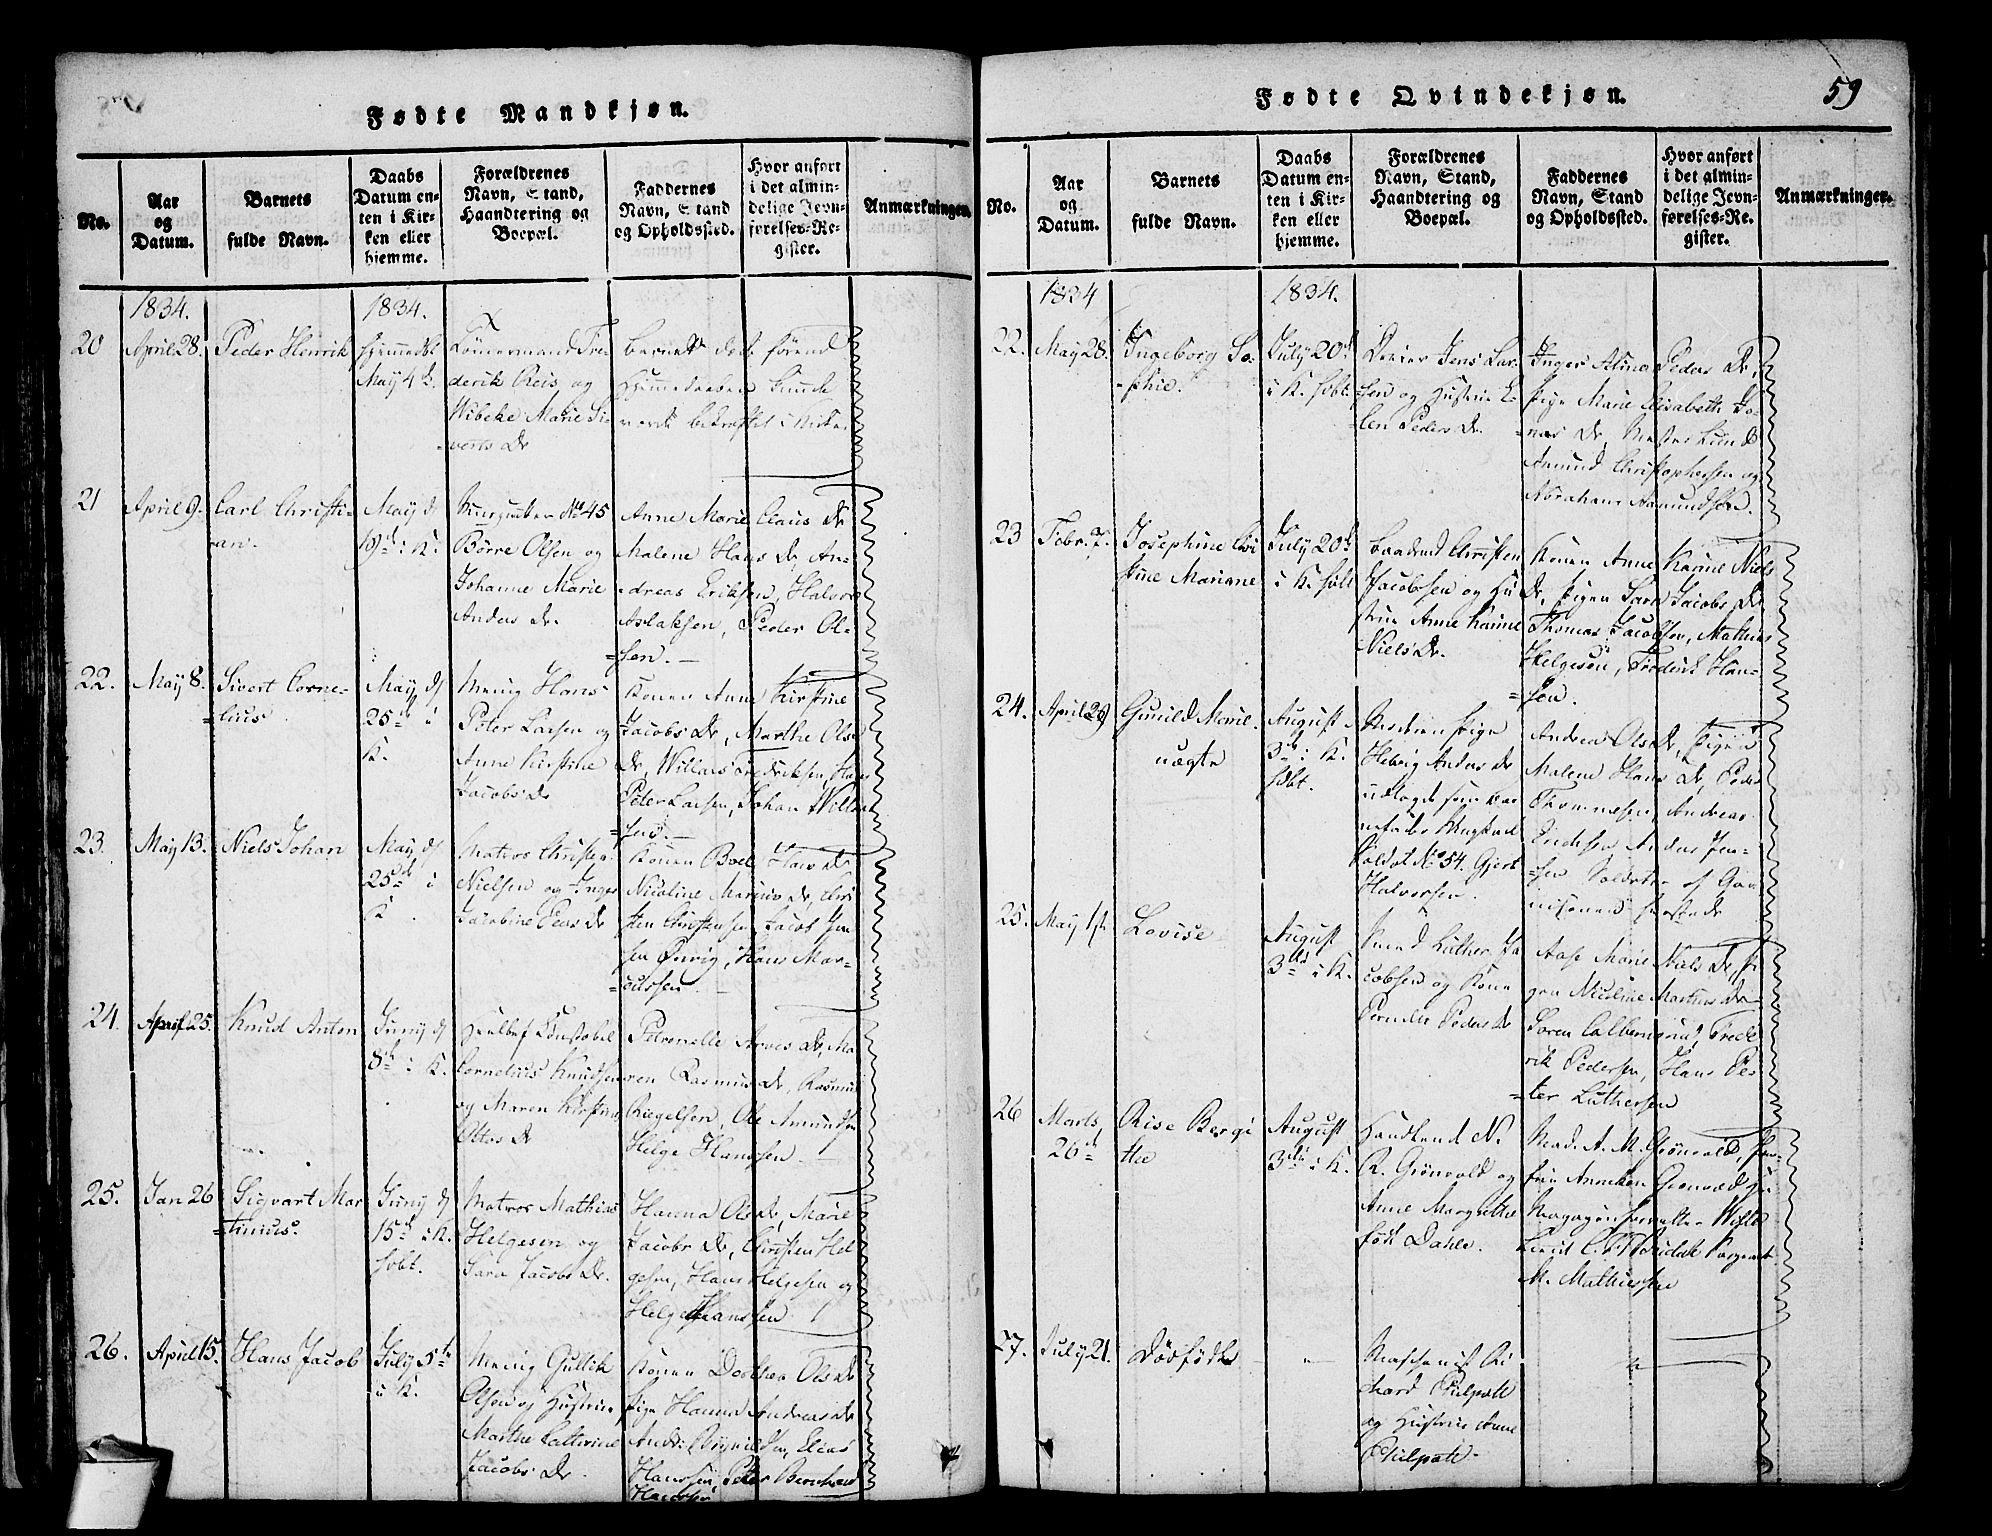 Fødte Mandkjøn.
No.
Aar
og
Datum.
Barnets
fulde Navn.
Daabs
Datum en-
ten i Kir-
ken eller
hjemme.
Forældrenes
Navn, Stand,
Haandtering og
Boepæl.
Faddernes
Navn, Stand
og Opholdssted.
Hvor anført
i det almin-
delige Jevn-
førelses-Re-
gister.
Anmærkninger.
1834.
1834.
20
April 28.
Peder Henrik
hjemmedbt
May 4
Tömermand Fre-
derik Reis og
Wibeke Marie Si-
verts Dr
Barnet døde førend
Hjemmedaaben kunde
vorde bekræftet i Kirke
21
April 9.
Carl Christi-
an.
May d
19de i K.
No 45
Börre Olsen og
Johanne Marie
Anders Dr.
Anne Marie Claus Dr
Malene Hans Dr, An-
dreas Eriksen, Halvor
Aslaksen, Peder Ol-
sen.
22.
May 8.
Sivert Corne-
lius
May d
25de i
K.
Mening Hans
Peter Larsen og
Anne Kirstine
Jacobs Dr
Konen Anne Kirstine
Jacobs Dr, Marthe Ols
Dr, Willars Fredriksen, Hans
Peter Larsen, Johan Willar
sen.
23.
May 13.
Niels Johan
May d
25de i
K
Matros Christen
Nielsen og Inger
Jacobine Peders Dr
Konen Boel Hans Dr
Nicoline Marius Dr, Chri
sten Christensen, Jacob Jen
sen Örvig, Hans Mar-
cussen
24.
April 25.
Knud Anton
Juny d
8de i K.
Constabel
Cornelius Knudsen
og Maren Kirstine
Ottos Dr
Petronelle Arves Dr, Ma
ren Rasmus Dr, Rasmus
Riegelsen, Ole Amundsen
Helge Hanssen
25.
Jan 26
Sigvart Mar
tinius.
Juny d
15de i K.
hdbt.
Matros Mathias
Helgesen og
Sara Jacobs Dr.
Hanna Ols Dr, Marie
Jacobs Dr, Christen Hel
gesen, Hans Helgesen og
Helge Hanssen
26.
April 15.
Hans Jacob
July 5te
i K.
Mening Gullik
Olsen og Hustrue
Marthe Cathrine
Jacobs Dr
Konen Dorthea Ols Dr
Pige Hanna Andreas Dr
Elias
Hanssen, Peter Bernhard
Hanssen
Fødte Qvindekjøn.
59
No.
Aar
og
Datum.
Barnets
fulde Navn.
Daabs
Datum en-
ten i Kir-
ken eller
hjemme.
Forældrenes
Navn, Stand,
Haandtering og
Boepæl.
Faddernes
Navn, Stand
og Opholdssted.
Hvor anført
i det almin-
delige Jevn-
førelses-Re-
gister.
Anmærkninger.
1834
1834.
22.
May 28.
Ingeborg So-
phie.
July 20de
i K. hdbt.
Jens Lar-
sen og Hustrue E-
len Peders Dr.
Inger Aline Peders Dr,
Pige Marie Elisabeth Jo-
nas Dr, Lund
Amund Christophersen og
Abraham Aamundsen.
23
Febr. 7.
Josephine Chri
stine Mariane
July 20de
i K. hdbt
Baadsmd Christen
Jacobsen og Hu
strue Anne Karine
Niels Dr.
Konen Anne Karine Niels
Dr, Pigen Sara Jacobs Dr
Thomas Jacobsen, Mathias
Helgesen, Frederik Han-
sen.
24.
April 29
Gunild Marie
uægte
August
3de i K.
hdbt.
Pige
Helvig Anders Dr
udlagde som bar
nefader
Soldat No 54. Gjert
Halvorsen.
Andrea Ols Dr, Pigen
Malene Hans Dr, Peder
Thommesen, Andreas
Erichsen Anders Jen-
sen Soldater af Gar
nisonen
25.
May 1st
Lovise
August
3de i K.
Smed Luther Ja
cobsen og Kone
Pernille Peders Dr
Aase Marie Niels Dr, Pi
gen Nicoline Martins Dr
Søren Fred
rik Pedersen, Hans Pe-
ter Luthersen
26
Marts
26de
Rise Bergi
the
August
3de i K.
Handlend N.
R. Grönvold og
Anne Margrethe
født Dahle.
Mad. A. M. Grönvold, Jom-
frue Anneken Grönvold
Magazinforvalter Wifte
Lieut C. Sergeant
M. Mathiessen
27.
July 21.
Dødfødt
"
Maschenist Ri
chard Philpott
og Hustrue Anne
Philpott.
"